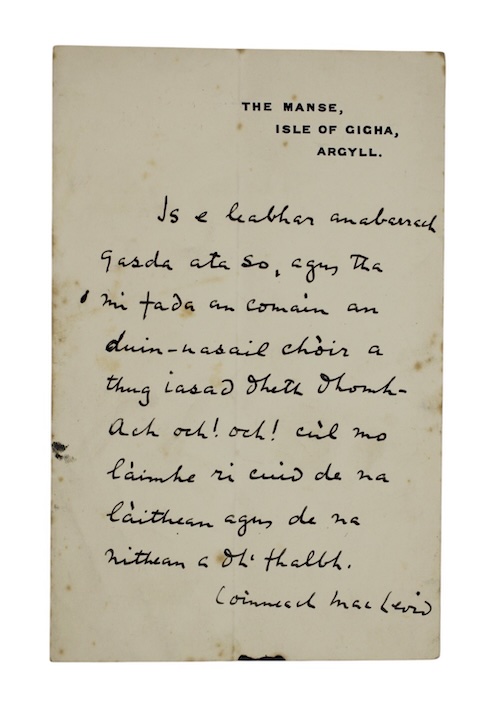 THE MANSE,
ISLE OF GIGHA,
ARGYLL.
Is e leabhar anabarrach
gasda ata so, agus tha
mi fada an comain an
duin-uasail chòir a
thug iasad dheth dhomh-
Ach och! och! cùl mo
làimhe ri cuid de na
làithean agus de na
nithean a dh' fhalbh.
Coinneach MacLeòid